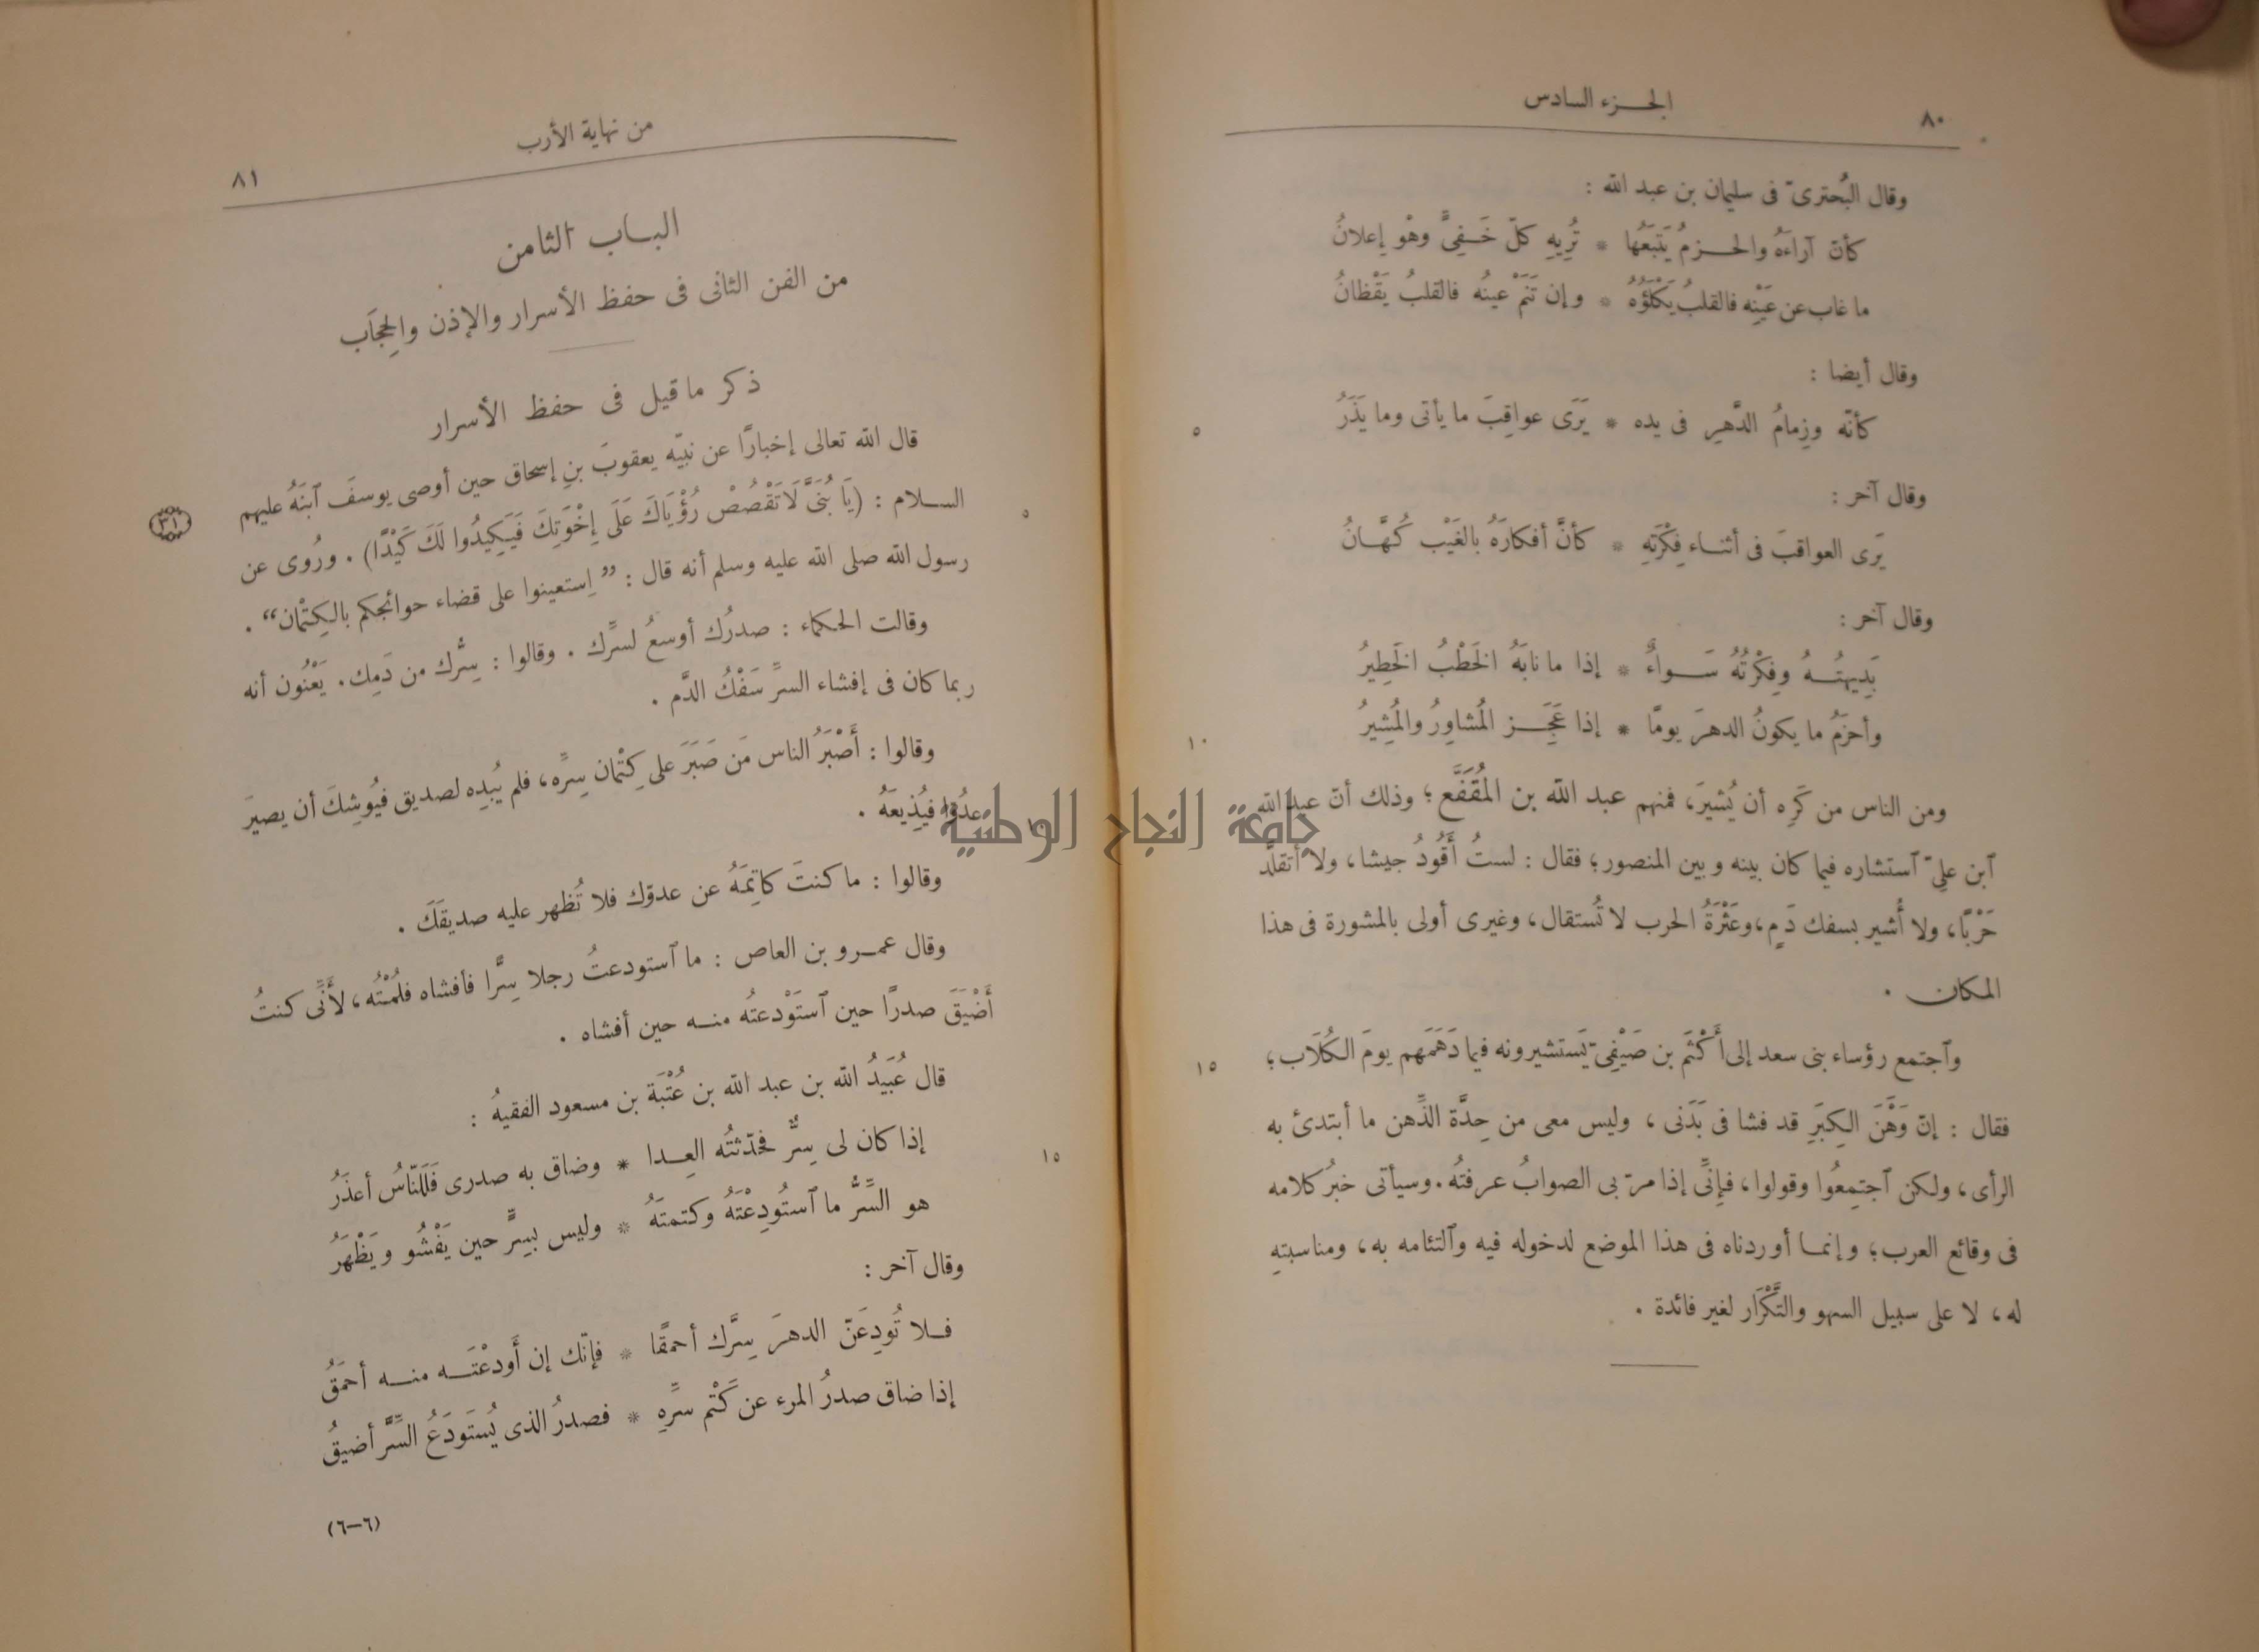 ٨٠
الجـزء السادس
وقال البُحترىّ فى سليمان بن عبد الله :
كأنّ آراءَهُ والحـزمُ يَتبَعُها * تُرِيهِ كلّ خَـفِىٍّ وهْو إعلانُ
ما غاب عن عَيْنِه فالقلبُ يَكْلَؤُهُ * وإن تَنَمْ عينُه فالقلبُ يَقْظانُ
وقال أيضا :
كأنّه وزِمامُ الدَّهرِ فى يده * يَرَى عواقِبَ ما يأتى وما يَذَرُ
٥
وقال آخر :
يَرى العواقبَ فى أثنـاء فِكْرَتِهِ * كأنَّ أفكارَهُ بالغَيْب كُهَّـانُ
وقال آخر :
بَدِيهتُـهُ وفِكْرتُهُ سَـواءٌ * إذا ما نابَهُ الخَطْبُ الخَطِيرُ
وأحزَمُ ما يكونُ الدهرَ يومًا * إذا عَجَـز المُشاوِرُ والمُشِيرُ
١٠
ومن الناس من كَرِه أن يُشيرَ، فمنهم عبد الله بن المُقَفَّع؛ وذلك أنّ عبد الله
آبن علىّ آستشاره فيما كان بينه وبين المنصور؛ فقال : لستُ أَقُودُ جيشا، ولا أتقلّد
حَرْبًا، ولا أُشير بسفك دَمٍ، وعَثْرَةُ الحرب لا تُستقال، وغيرى أولى بالمشورة فى هذا
المكان .
وآجتمع رؤساء بنى سعد إلى أَكْثَم بن صَيْفِىّ يَستشيرونه فيما دَهَمَهم يومَ الكُلَاب؛
١٥
فقال : إنّ وَهْنَ الكِبَرِ قد فشا فى بَدَنى ، وليس معى من حِدَّة الذِّهن ما أبتدئ به
الرأى، ولكن آجتمِعُوا وقولوا، فإنِّى إذا مرّ بى الصوابُ عرفتُه. وسيأتى خبرُ كلامه
فى وقائع العرب؛ وإنمـا أوردناه فى هذا الموضع لدخوله فيه وآلتئامه به، ومناسبتِهِ
له، لا على سبيل السهو والتَّكْرَار لغير فائدة .
من نهاية الأرب
٨١
البـاب الثامن
من الفن الثانى فى حفظ الأسرار والإذن والحِجَاب
ذكر ما قيل فى حفظ الأسرار
قال الله تعالى إخبارًا عن نبيّه يعقوبَ بنِ إسحاق حين أوصى يوسفَ آبنَهُ عليهم
السـلام : (يَا بُنَىَّ لَا تَقْصُصْ رُؤْيَاكَ عَلَى إِخْوَتِكَ فَيَكِيدُوا لَكَ كَيْدًا) . ورُوى عن
٥
٣١
رسول الله صلى الله عليه وسلم أنه قال : ”اِستعينوا على قضاء حوائجكم بالكِتْمان“ .
وقالت الحكماء : صدرُك أوسعُ لسرِّك . وقالوا : سِرُّك من دَمِك. يَعْنُون أنه
ربما كان فى إفشاء السرِّ سَفْكُ الدَّم .
وقالوا : أَصْبَرُ الناس مَن صَبَرَ على كِتْمان سِرِّه، فلم يُبدِه لصديق فيُوشِكَ أن يصيرَ
عدُوّا فيُذِيعَهُ .
١٠
جامعة النجاح الوطنية
وقالوا : ما كنتَ كاتِمَهُ عن عدوّك فلا تُظهر عليه صديقَكَ .
وقال عمـرو بن العاص : ما آستودعتُ رجلا سِرًّا فأفشاه فلُمْتُه، لأَنِّى كنتُ
أَضْيَقَ صدرًا حين آستَوْدعتُه منـه حين أفشاه .
قال عُبَيدُ الله بن عبد الله بن عُتْبَة بن مسعود الفقيهُ :
إذا كان لى سِرٌّ فحدّثتُه العِـدا * وضاق به صدرى فَلَلنّاسُ أعذَرُ
١٥
هو السِّرُّ ما آستُودِعْتَهُ وكتمتَهُ * وليس بسِرٍّ حين يَفْشُو ويَظْهَرُ
وقال آخر :
فـلا تُودِعَنّ الدهرَ سِرَّك أحمقًا * فإنّك إن أَودعْتَـه منـه أحمَقُ
إذا ضاق صدرُ المرء عن كَتْم سرِّهِ * فصدرُ الذى يُستَودَعُ السِّرَّ أضيقُ
(٦-٦)